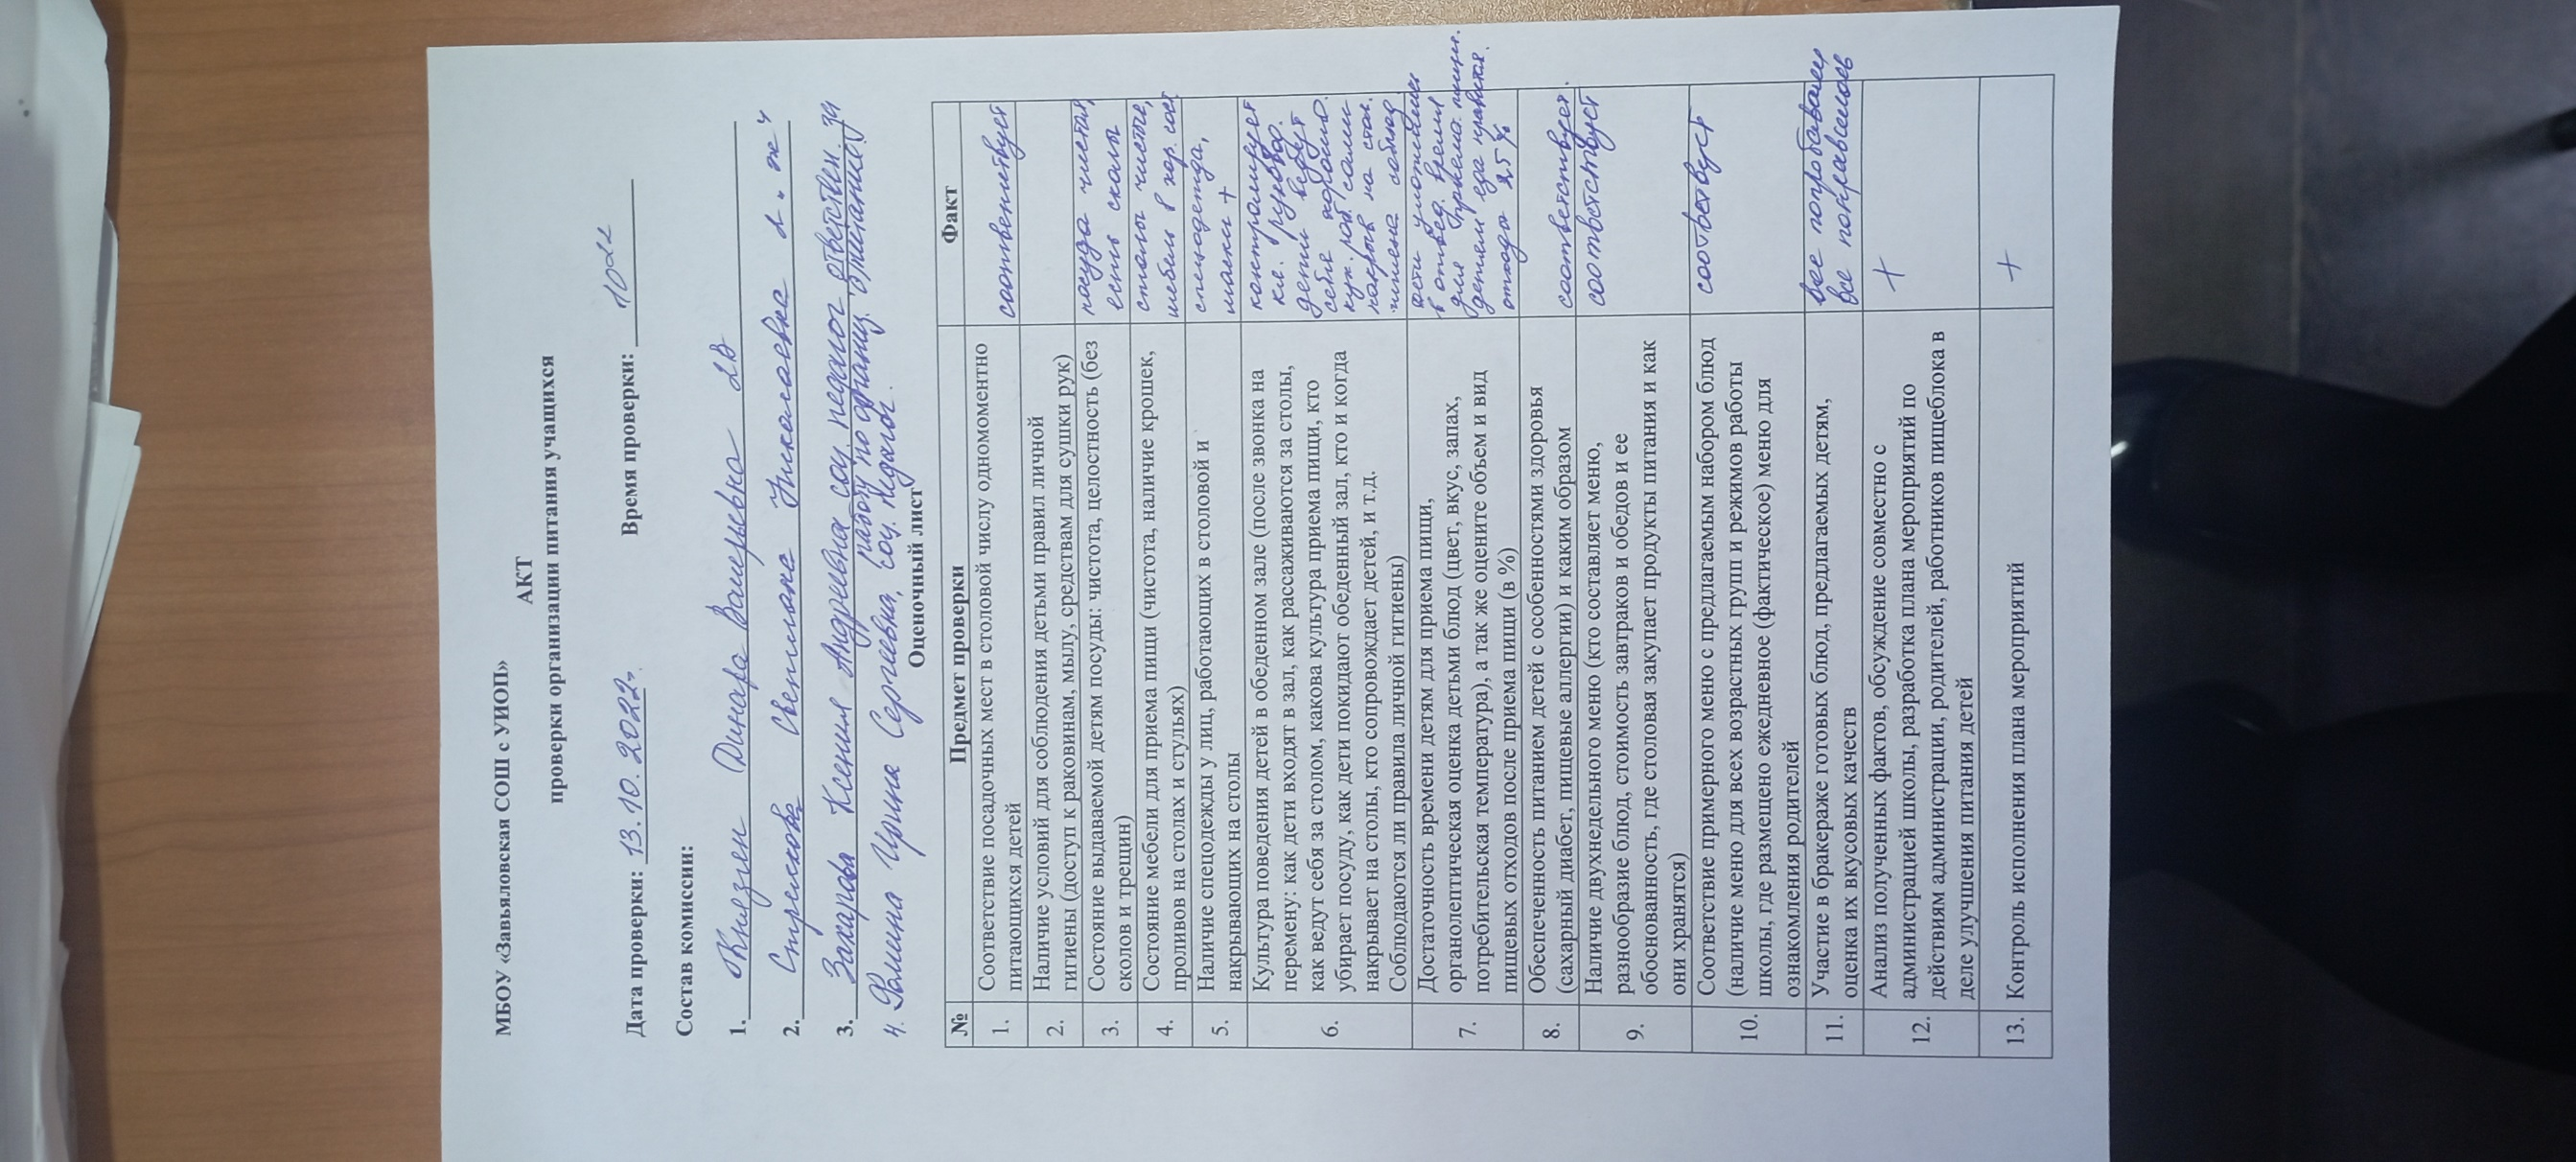 МБОУ «Завьяловская СОШ с УИОП»
АКТ
проверки организации питания учащихся
Дата проверки: 13.10.2022г. Время проверки: 10 22
Состав комиссии:
1. Князген Динара Валерьевна 2В
2. Стрелкова Светлана Николаевна 2 "ж"
3. Захарова Ксения Андреевна соц. педагог ответствен. за
работу по организ. питанию
4. Фомина Ирина Сергеевна, соц. педагог.
Оценочный лист
№ Предмет проверки Факт
1. Соответствие посадочных мест в столовой числу одномоментно
питающихся детей
соответствует
2. Наличие условий для соблюдения детьми правил личной
гигиены (доступ к раковинам, мылу, средствам для сушки рук)
3. Состояние выдаваемой детям посуды: чистота, целостность (без
сколов и трещин)
посуда чистая,
есть сколы
4. Состояние мебели для приема пищи (чистота, наличие крошек,
проливов на столах и стульях)
столы чистые,
мебель в хор. сост
5. Наличие спецодежды у лиц, работающих в столовой и
накрывающих на столы
спецодежда,
маски +
6. Культура поведения детей в обеденном зале (после звонка на
перемену: как дети входят в зал, как рассаживаются за столы,
как ведут себя за столом, какова культура приема пищи, кто
убирает посуду, как дети покидают обеденный зал, кто и когда
накрывает на столы, кто сопровождает детей, и т.д.
Соблюдаются ли правила личной гигиены)
контролирует
кл. руковод.
дети ведут
себя хорошо.
кух. раб. сами
накрыв на стол.
гигиена соблюд.
7. Достаточность времени детям для приема пищи,
органолептическая оценка детьми блюд (цвет, вкус, запах,
потребительская температура), а так же оцените объем и вид
пищевых отходов после приема пищи (в %)
дети
в отвед. время
для приема пищи.
детям еда нравится.
отхода 25 %
8. Обеспеченность питанием детей с особенностями здоровья
(сахарный диабет, пищевые аллергии) и каким образом
соответствует.
9. Наличие двухнедельного меню (кто составляет меню,
разнообразие блюд, стоимость завтраков и обедов и ее
обоснованность, где столовая закупает продукты питания и как
они хранятся)
соответствует
10. Соответствие примерного меню с предлагаемым набором блюд
(наличие меню для всех возрастных групп и режимов работы
школы, где размещено ежедневное (фактическое) меню для
ознакомления родителей
соответвуст
11. Участие в бракераже готовых блюд, предлагаемых детям,
оценка их вкусовых качеств
все попробовали
все понравилось
12. Анализ полученных фактов, обсуждение совместно с
администрацией школы, разработка плана мероприятий по
действиям администрации, родителей, работников пищеблока в
деле улучшения питания детей
+
13. Контроль исполнения плана мероприятий
+